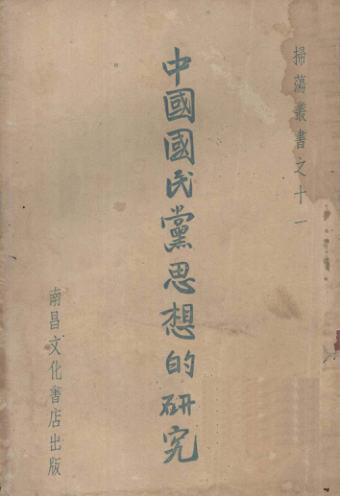 掃蕩叢書之十一
中國國民黨思想的研究
南昌文化書店出版